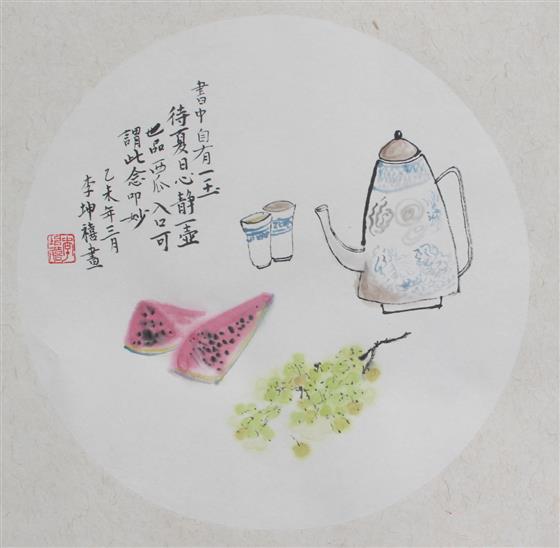 書中自有一玉
待夏日心静一壺
也品西瓜入口可
謂此念叩妙
乙未年三月
李坤禧畫